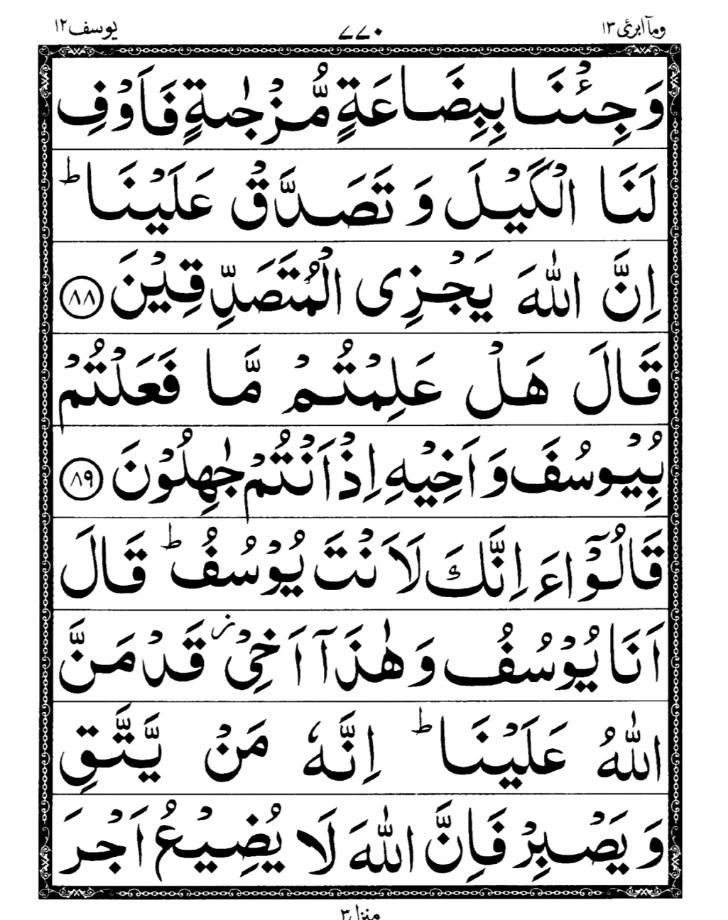 وماۤ ابرئ ١٣
٧٧٠
يوسف ١٢
وَجِئْنَا بِبِضَاعَةٍ مُّزْجٰىةٍ فَاَوْفِ
لَنَا الْكَيْلَ وَ تَصَدَّقْ عَلَيْنَا ؕ
اِنَّ اللّٰهَ يَجْزِى الْمُتَصَدِّقِيْنَ ﴿٨٨﴾
قَالَ هَلْ عَلِمْتُمْ مَّا فَعَلْتُمْ
بِيُوْسُفَ وَاَخِيْهِ اِذْ اَنْتُمْ جٰهِلُوْنَ ﴿٨٩﴾
قَالُوْۤا ءَاِنَّكَ لَاَنْتَ يُوْسُفُ ؕ قَالَ
اَنَا يُوْسُفُ وَهٰذَاۤ اَخِىْ ؗ قَدْ مَنَّ
اللّٰهُ عَلَيْنَا ؕ اِنَّهٗ مَنْ يَّتَّقِ
وَ يَصْبِرْ فَاِنَّ اللّٰهَ لَا يُضِيْعُ اَجْرَ
منزل ٣